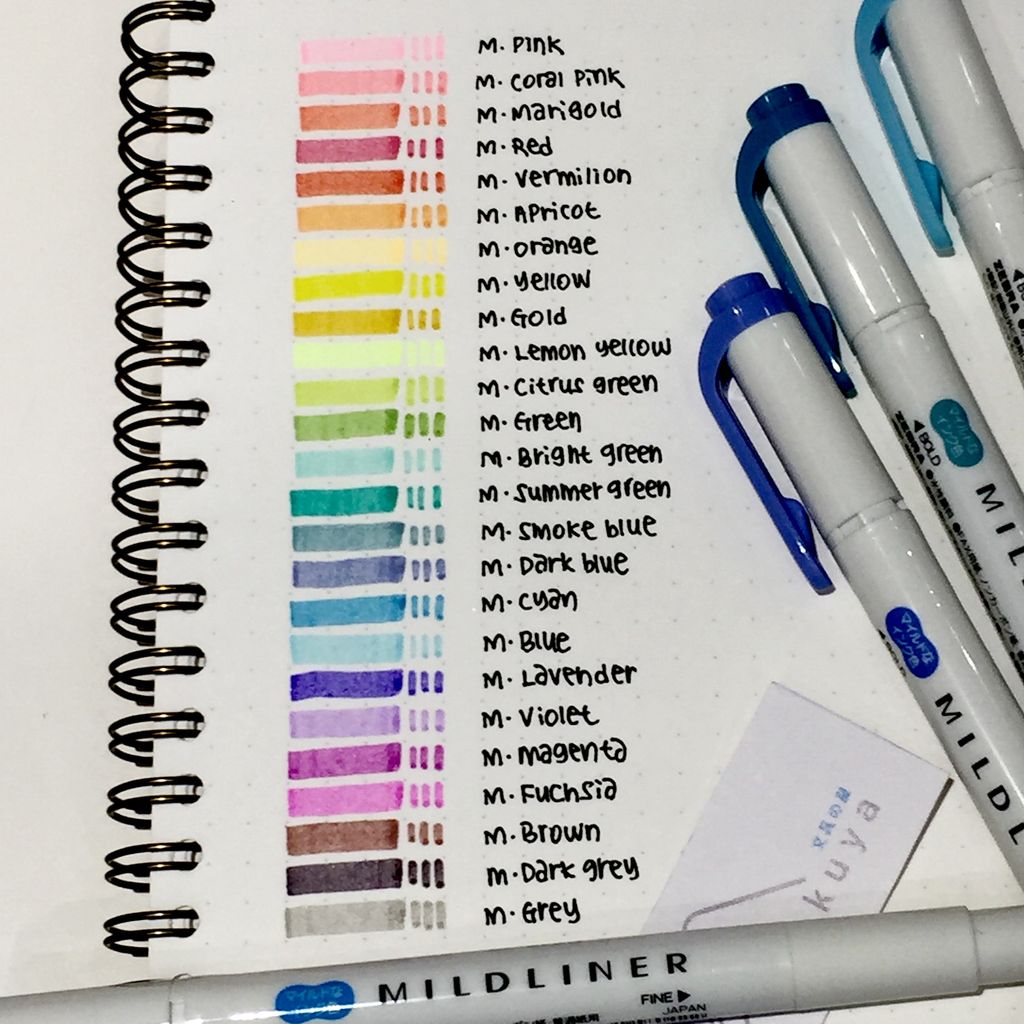 M. Pink
M. Coral Pink
M. Marigold
M. Red
M. Vermilion
M. Apricot
M. Orange
M. Yellow
M. Gold
M. Lemon yellow
M. Citrus green
M. Green
M. Bright green
M. Summer green
M. Smoke blue
M. Dark blue
M. Cyan
M. Blue
M. Lavender
M. Violet
M. Magenta
M. Fuchsia
M. Brown
M. Dark grey
M. Grey
ZEBRA
◀BOLD
マイルドな
インク色
MIL
マイルドな
インク色
MILDL
文具の森
kuya
マイルドな
インク色
MILDLINER
FINE▶
JAPAN